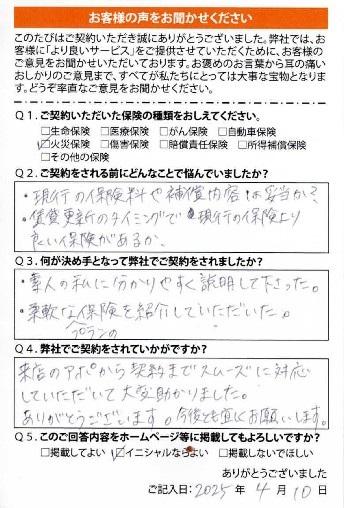 お客様の声をお聞かせください
このたびはご契約いただき誠にありがとうございました。弊社では、お
客様に「より良いサービス」をご提供させていただくために、お客様の
ご意見をお聞かせいただいております。お褒めのお言葉から耳の痛い
おしかりのご意見まで、すべてが私たちにとっては大事な宝物となりま
す。どうぞ率直なご意見をお聞かせください。
Q1.ご契約いただいた保険の種類をおしえてください。
□生命保険 □医療保険 □がん保険 □自動車保険
☑火災保険 □傷害保険 □賠償責任保険 □所得補償保険
□その他の保険
Q2.ご契約をされる前にどんなことで悩んでいましたか?
・現行の保険料や補償内容は妥当か?
・賃貸更新のタイミングで現行の保険より
良い保険があるか、
Q3.何が決め手となって弊社でご契約をされましたか?
・素人の私に分かりやすく説明して下さった。
・柔軟な保険を紹介していただいた。
プランの
Q4.弊社でご契約をされていかがですか?
来店のアポから契約までスムーズに対応
していただいて大変助かりました。
ありがとうございます。今後とも宜しくお願いします。
Q5.このご回答内容をホームページ等に掲載してもよろしいですか?
□掲載してよい ☑イニシャルならよい □掲載しないでほしい
ありがとうございました
ご記入日:2025年4月10日